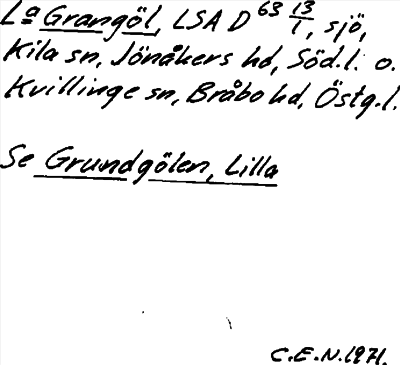 La Grangöl, LSA D 63 13/1, sjö,
Kila sn, Jönåkers hd, Söd.l. o.
Kvillinge sn, Bråbo hd, Östg.l.
Se Grundgölen, Lilla
C.E.N. 1971.